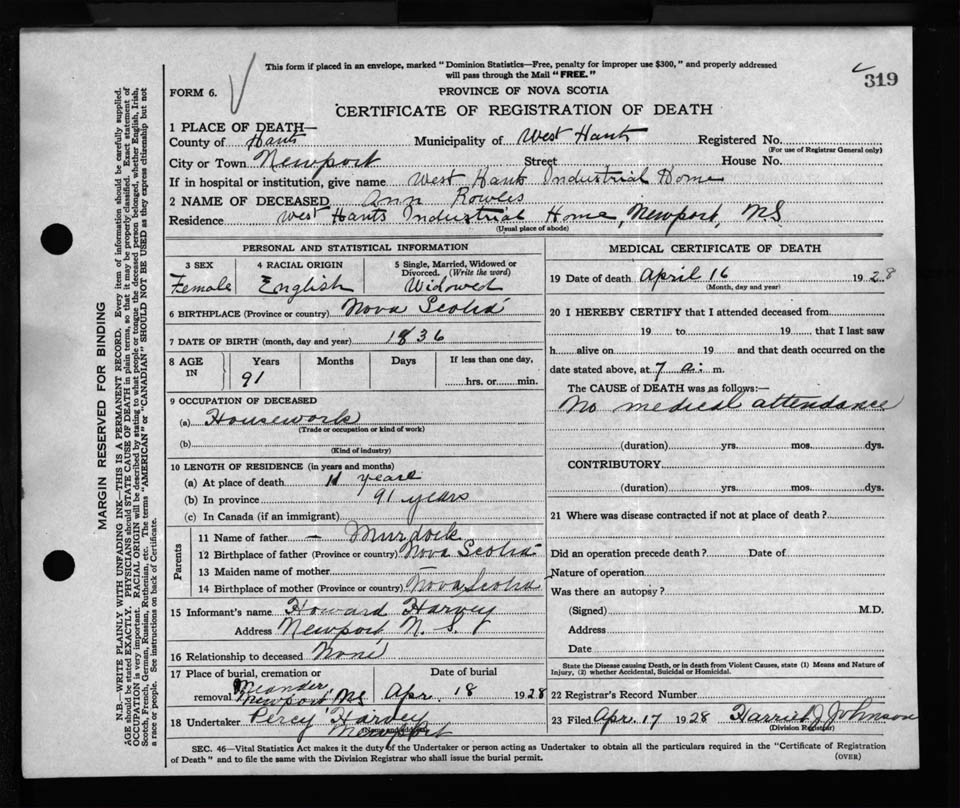 This form if placed in an envelope, marked "Dominion Statistics—Free, penalty for improper use $300," and properly addressed
will pass through the Mail "FREE."
319
FORM 6.
PROVINCE OF NOVA SCOTIA
CERTIFICATE OF REGISTRATION OF DEATH
1 PLACE OF DEATH—
County of Hants Municipality of West Hants Registered No.
(For use of Registrar General only)
City or Town Newport Street House No.
If in hospital or institution, give name West Hants Industrial Home
2 NAME OF DECEASED Ann Rowles
Residence West Hants Industrial Home, Newport, NS
(Usual place of abode)
PERSONAL AND STATISTICAL INFORMATION
3 SEX 4 RACIAL ORIGIN 5 Single, Married, Widowed or
Divorced. (Write the word)
Female English Widowed
6 BIRTHPLACE (Province or country) Nova Scotia
7 DATE OF BIRTH (month, day and year) 1836
8 AGE IN Years Months Days If less than one day,
91 hrs. or min.
9 OCCUPATION OF DECEASED
(a) Housework
(Trade or occupation or kind of work)
(b)
(Kind of industry)
10 LENGTH OF RESIDENCE (in years and months)
(a) At place of death 11 years
(b) In province 91 years
(c) In Canada (if an immigrant)
Parents
11 Name of father — Murdock
12 Birthplace of father (Province or country) Nova Scotia
13 Maiden name of mother
14 Birthplace of mother (Province or country) Nova Scotia
15 Informant's name Howard Harvey
Address Newport N. S.
16 Relationship to deceased None
17 Place of burial, cremation or Date of burial
removal Meander Newport, NS Apr. 18 1928
18 Undertaker Percy Harvey
(Name and address)
Newport
MEDICAL CERTIFICATE OF DEATH
19 Date of death April 16 1928
(Month, day and year)
20 I HEREBY CERTIFY that I attended deceased from
19 to 19 that I last saw
h alive on 19 and that death occurred on the
date stated above, at 7 a. m.
The CAUSE of DEATH was as follows:—
No medical attendance
(duration) yrs. mos. dys.
CONTRIBUTORY
(duration) yrs. mos. dys.
21 Where was disease contracted if not at place of death?
Did an operation precede death? Date of
Nature of operation
Was there an autopsy?
(Signed) M.D.
Address
Date
State the Disease causing Death, or in death from Violent Causes, state (1) Means and Nature of
Injury, (2) whether Accidental, Suicidal or Homicidal.
22 Registrar's Record Number
23 Filed Apr. 17 1928 Harriet J Johnson
(Division Registrar)
SEC. 46—Vital Statistics Act makes it the duty of the Undertaker or person acting as Undertaker to obtain all the particulars required in the "Certificate of Registration
of Death" and to file the same with the Division Registrar who shall issue the burial permit.
(OVER)
MARGIN RESERVED FOR BINDING
N.B.—WRITE PLAINLY WITH UNFADING INK—THIS IS A PERMANENT RECORD. Every item of information should be carefully supplied.
AGE should be stated EXACTLY. PHYSICIANS should STATE CAUSE OF DEATH in plain terms, so that it may be properly classified. Exact statement of
OCCUPATION is very important. RACIAL ORIGIN will be described by stating to what people or tongue the deceased person belonged, whether English, Irish,
Scotch, French, German, Russian, Ruthenian, etc. The terms "AMERICAN" or "CANADIAN" SHOULD NOT BE USED as they express citizenship but not
a race or people. See instructions on back of Certificate.